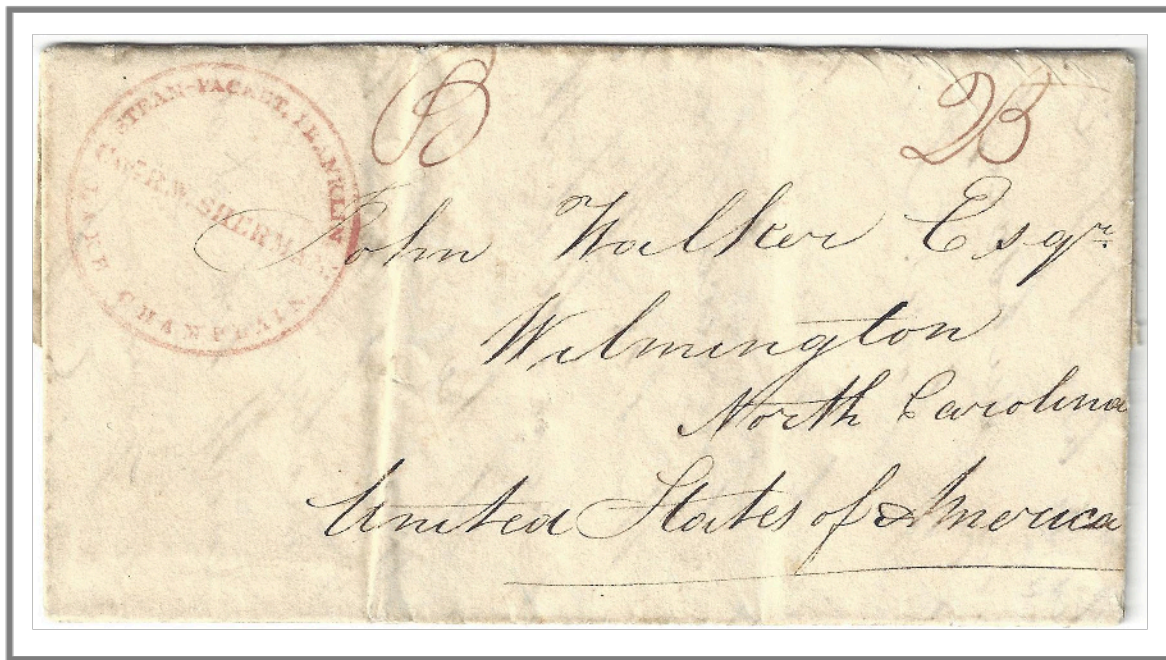 STEAM-PACKET, FRANKLIN
CAPT. R.W. SHERMAN
LAKE CHAMPLAIN
John Walker Esqr
Wilmington
North Carolina
United States of America